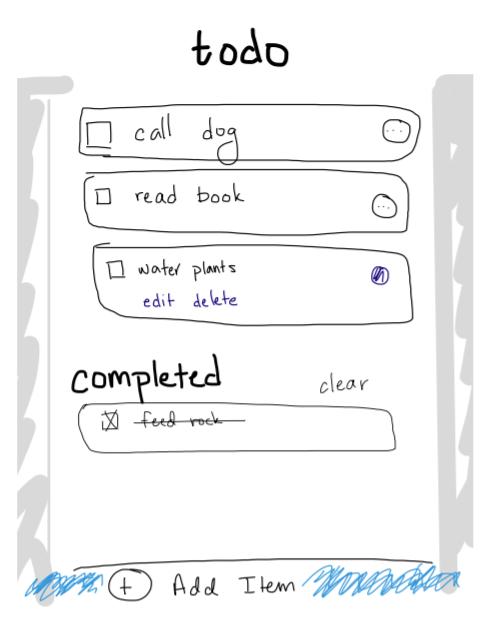 todo
call dog
read book
water plants
edit delete
completed clear
feed rock
+ Add Item